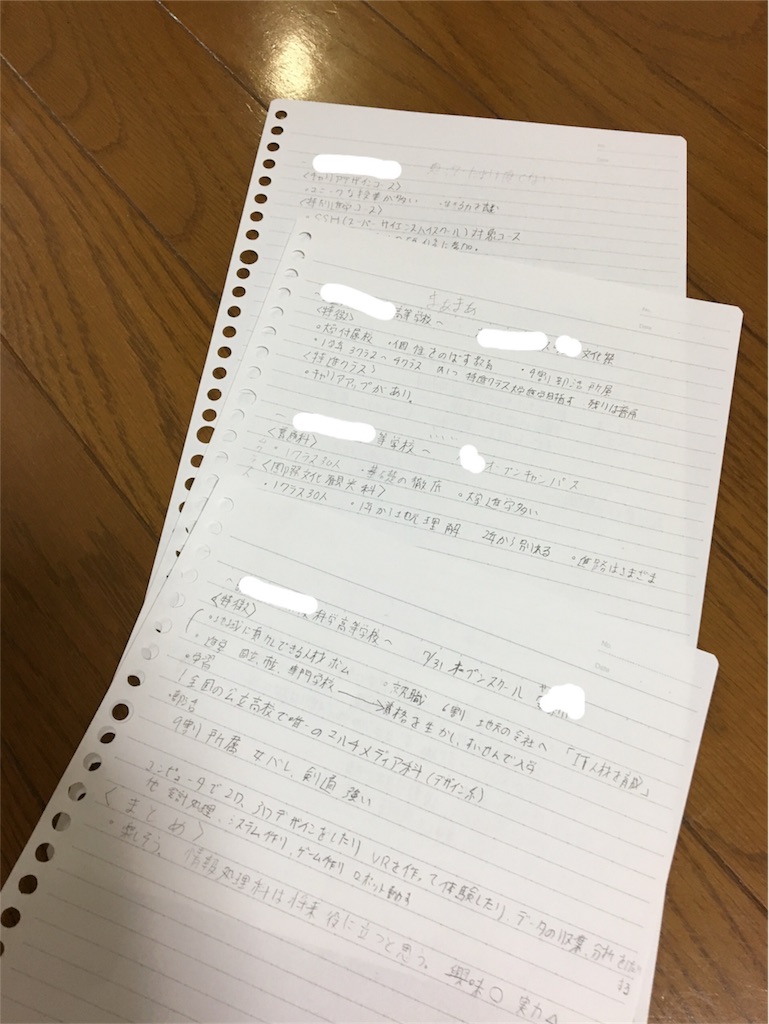 <キャリアデザインコース>
・ユニークな授業が多い
<特別進学コース>
・(スーパーサイエンスハイスクール)対象コース
No.
Date
高等学校へ
<特徴>
文化祭
・大学付属校 ・個性をのばす教育 ・9割部活所属
・1学年3クラス〜4クラス 特進クラス大学進学目指す
<特進クラス>
・キャリアアップがあり。
等学校へ オープンキャンパス
・1クラス30人 ・基礎の徹底 ・大学進学多い
<国際文化観光科>
・1クラス30人 ・1年から地元理解 2年から分かれる ・進路はさまざま
No.
Date
科学高等学校へ 7/31 オープンスクール
<特徴>
・地域に貢献できる人材 「IT人材を育成」
・進学 国立、私立、専門学校 ・就職 6割 地元の会社へ
・学習 資格を生かし、すいせんで入学
全国の公立高校で唯一のマルチメディア科(デザイン系)
・部活
9割り所属 女バレ、剣道強い
コンピュータで2D、3Dデザインをしたり VRを作って体験したり、データの収集、分析
他 会計処理、システム作り、ゲーム作り ロボット動かす
<まとめ>
・楽しそう。情報処理科は将来役に立つと思う。 興味○ 実力△